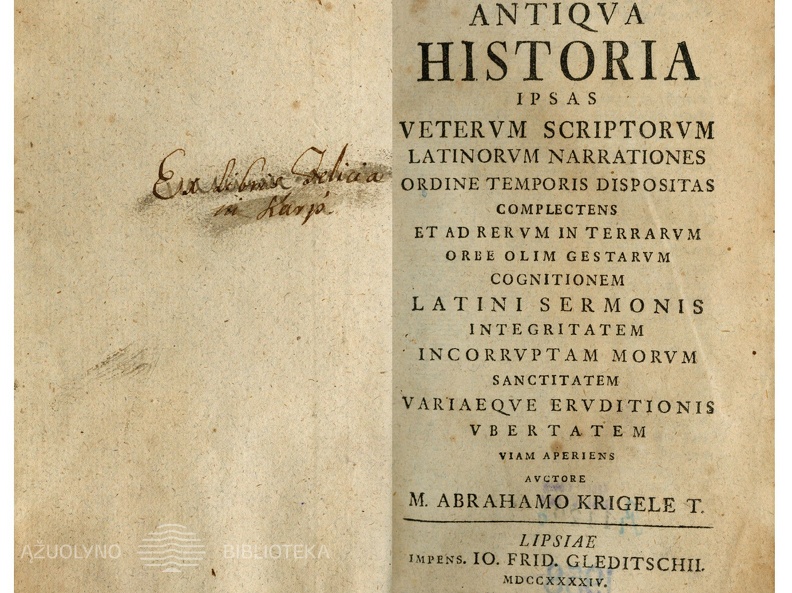 Ex libris Felicia
ni Karpi
AŽUOLYNO BIBLIOTEKA
ANTIQVA
HISTORIA
IPSAS
VETERVM SCRIPTORVM
LATINORVM NARRATIONES
ORDINE TEMPORIS DISPOSITAS
COMPLECTENS
ET AD RERVM IN TERRARVM
ORBE OLIM GESTARVM
COGNITIONEM
LATINI SERMONIS
INTEGRITATEM
INCORRVPTAM MORVM
SANCTITATEM
VARIAEQVE ERVDITIONIS
VBERTATEM
VIAM APERIENS
AVCTORE
M. ABRAHAMO KRIGELE T.
LIPSIAE
IMPENS. IO. FRID. GLEDITSCHII.
MDCCXXXXIV.